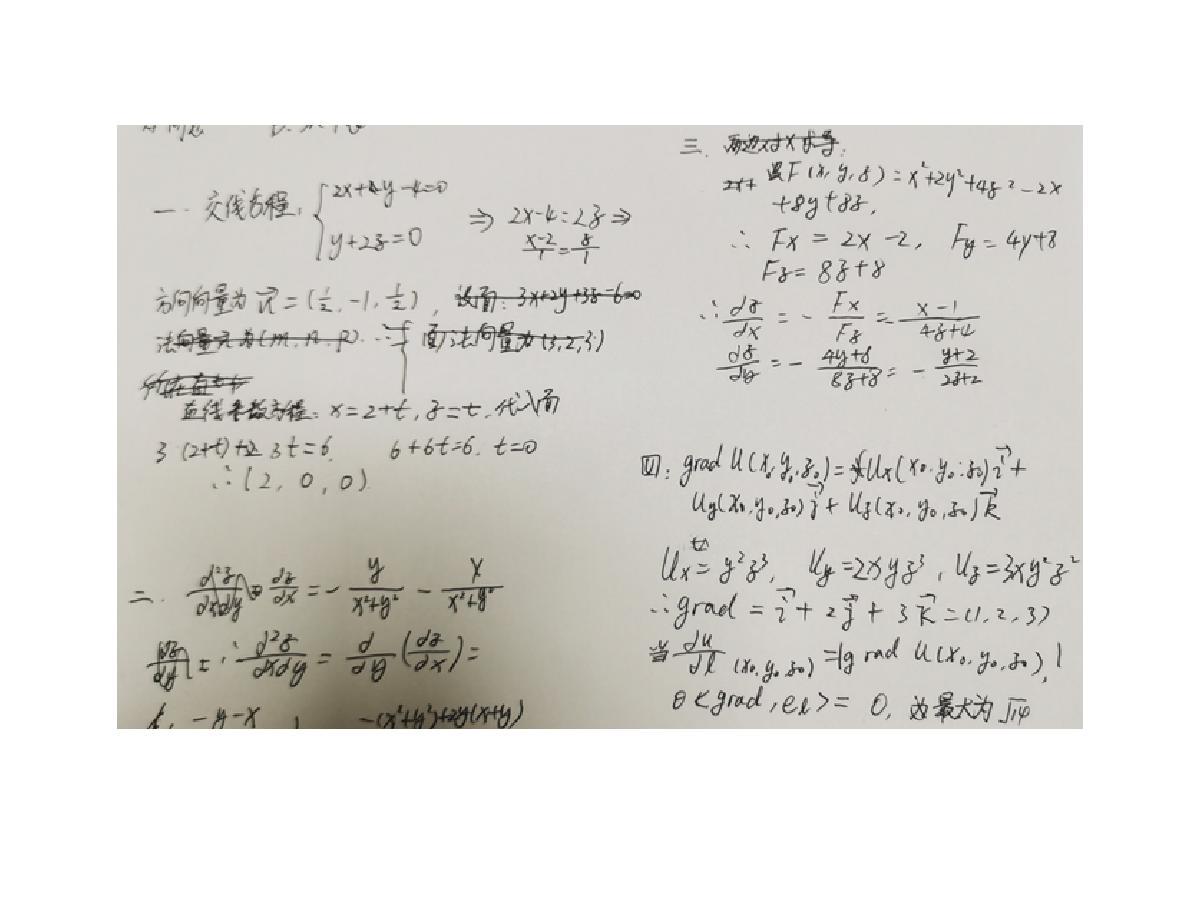 一. 交线方程: { 2x+4y-4=0
y+2z=0
⇒ 2x-4=2z ⇒
(x-2)/1 = z/1
方向向量为 n⃗ = (1/2, -1, 1/2), 设面: 3x+2y+3z-6=0
法向量为(m, n, p) ∴ 面法向量为(3,2,3)
直线参数方程: x=2+t, z=t, 代入面
3(2+t)+ 3t=6, 6+6t=6. t=0
∴(2, 0, 0)
二. d²z/dxdy dz/dx = - y/(x²+y²) - x/(x²+y²)
dz/dy = ∴ d²z/dxdy = d/dy (dz/dx) =
-y-x -(x²+y²)+2y(x+y)
三. 两边对x求导:
2x+ F(x, y, z) = x²+2y²+4z²-2x
+8y+8z,
∴ Fx = 2x-2, Fy = 4y+8
Fz = 8z+8
∴ dz/dx = - Fx/Fz = (x-1)/(4z+4)
dz/dy = - (4y+8)/(8z+8) = - (y+2)/(2z+2)
四: grad U(x₀, y₀, z₀) = Ux(x₀, y₀, z₀) i⃗ +
Uy(x₀, y₀, z₀) j⃗ + Uz(x₀, y₀, z₀) k⃗
Ux = y²z³, Uy = 2xyz³, Uz = 3xy²z²
∴ grad = i⃗ + 2j⃗ + 3k⃗ = (1, 2, 3)
当 du/dl (x₀, y₀, z₀) = |grad U(x₀, y₀, z₀)|
θ<grad, el> = 0, 为最大为 √14